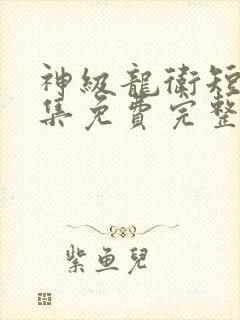 神級龍衛短
集免費完整
紫魚兒